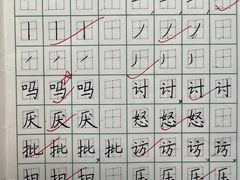 吗 吗 吗 讨 讨 讨
厌 厌 厌 怒 怒 怒
批 批 批 批 访 访 访